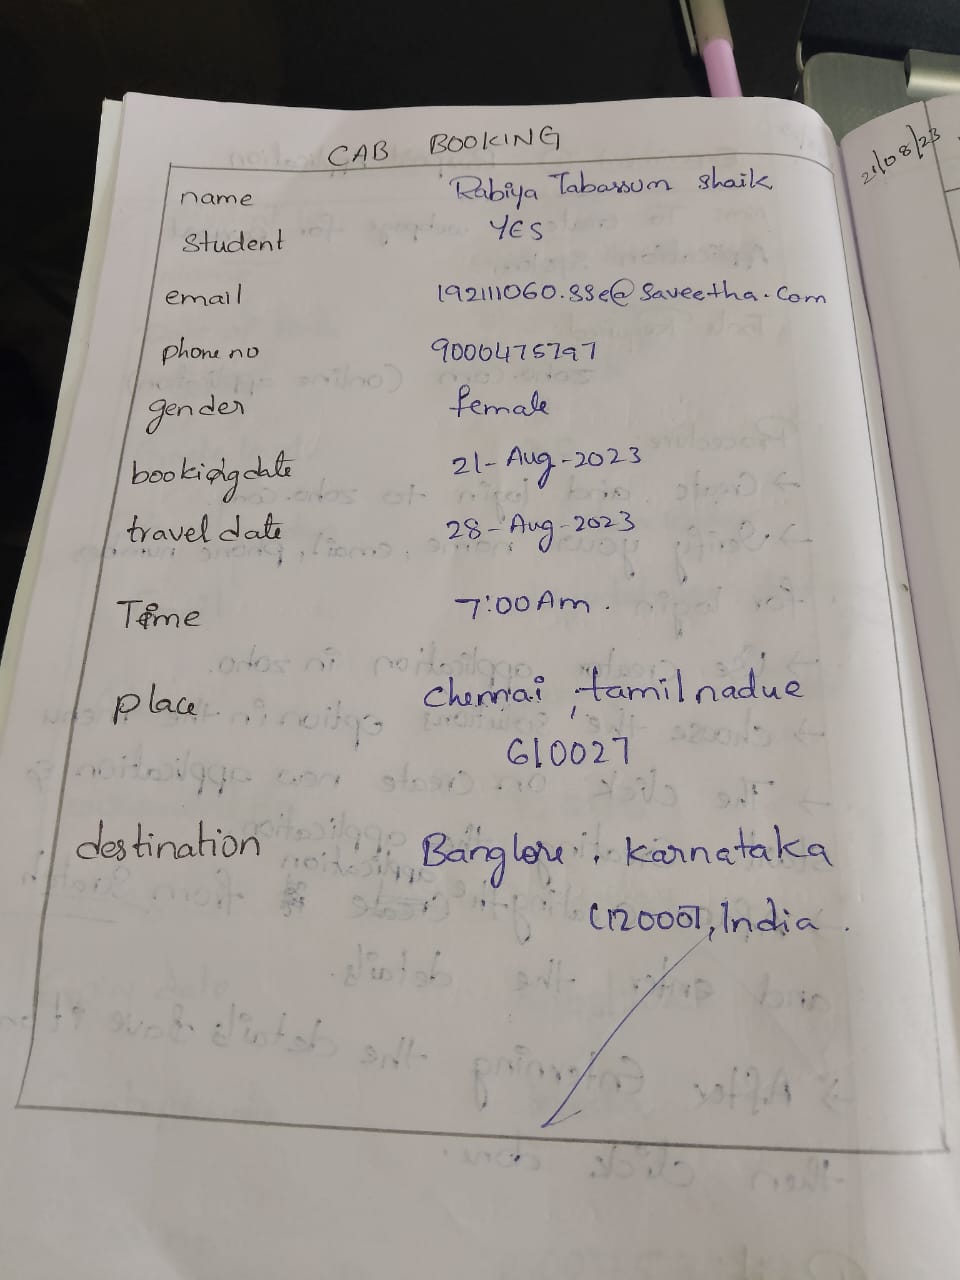 CAB BOOKING
21/08/23
name Rabiya Tabassum shaik
Student YES
email 192111060.sse@saveetha.com
phone no 9000475797
gender female
booking date 21-Aug-2023
travel date 28-Aug-2023
Time 7:00 Am.
place chennai, tamil nadue
610027
destination Banglore, karnataka
India.